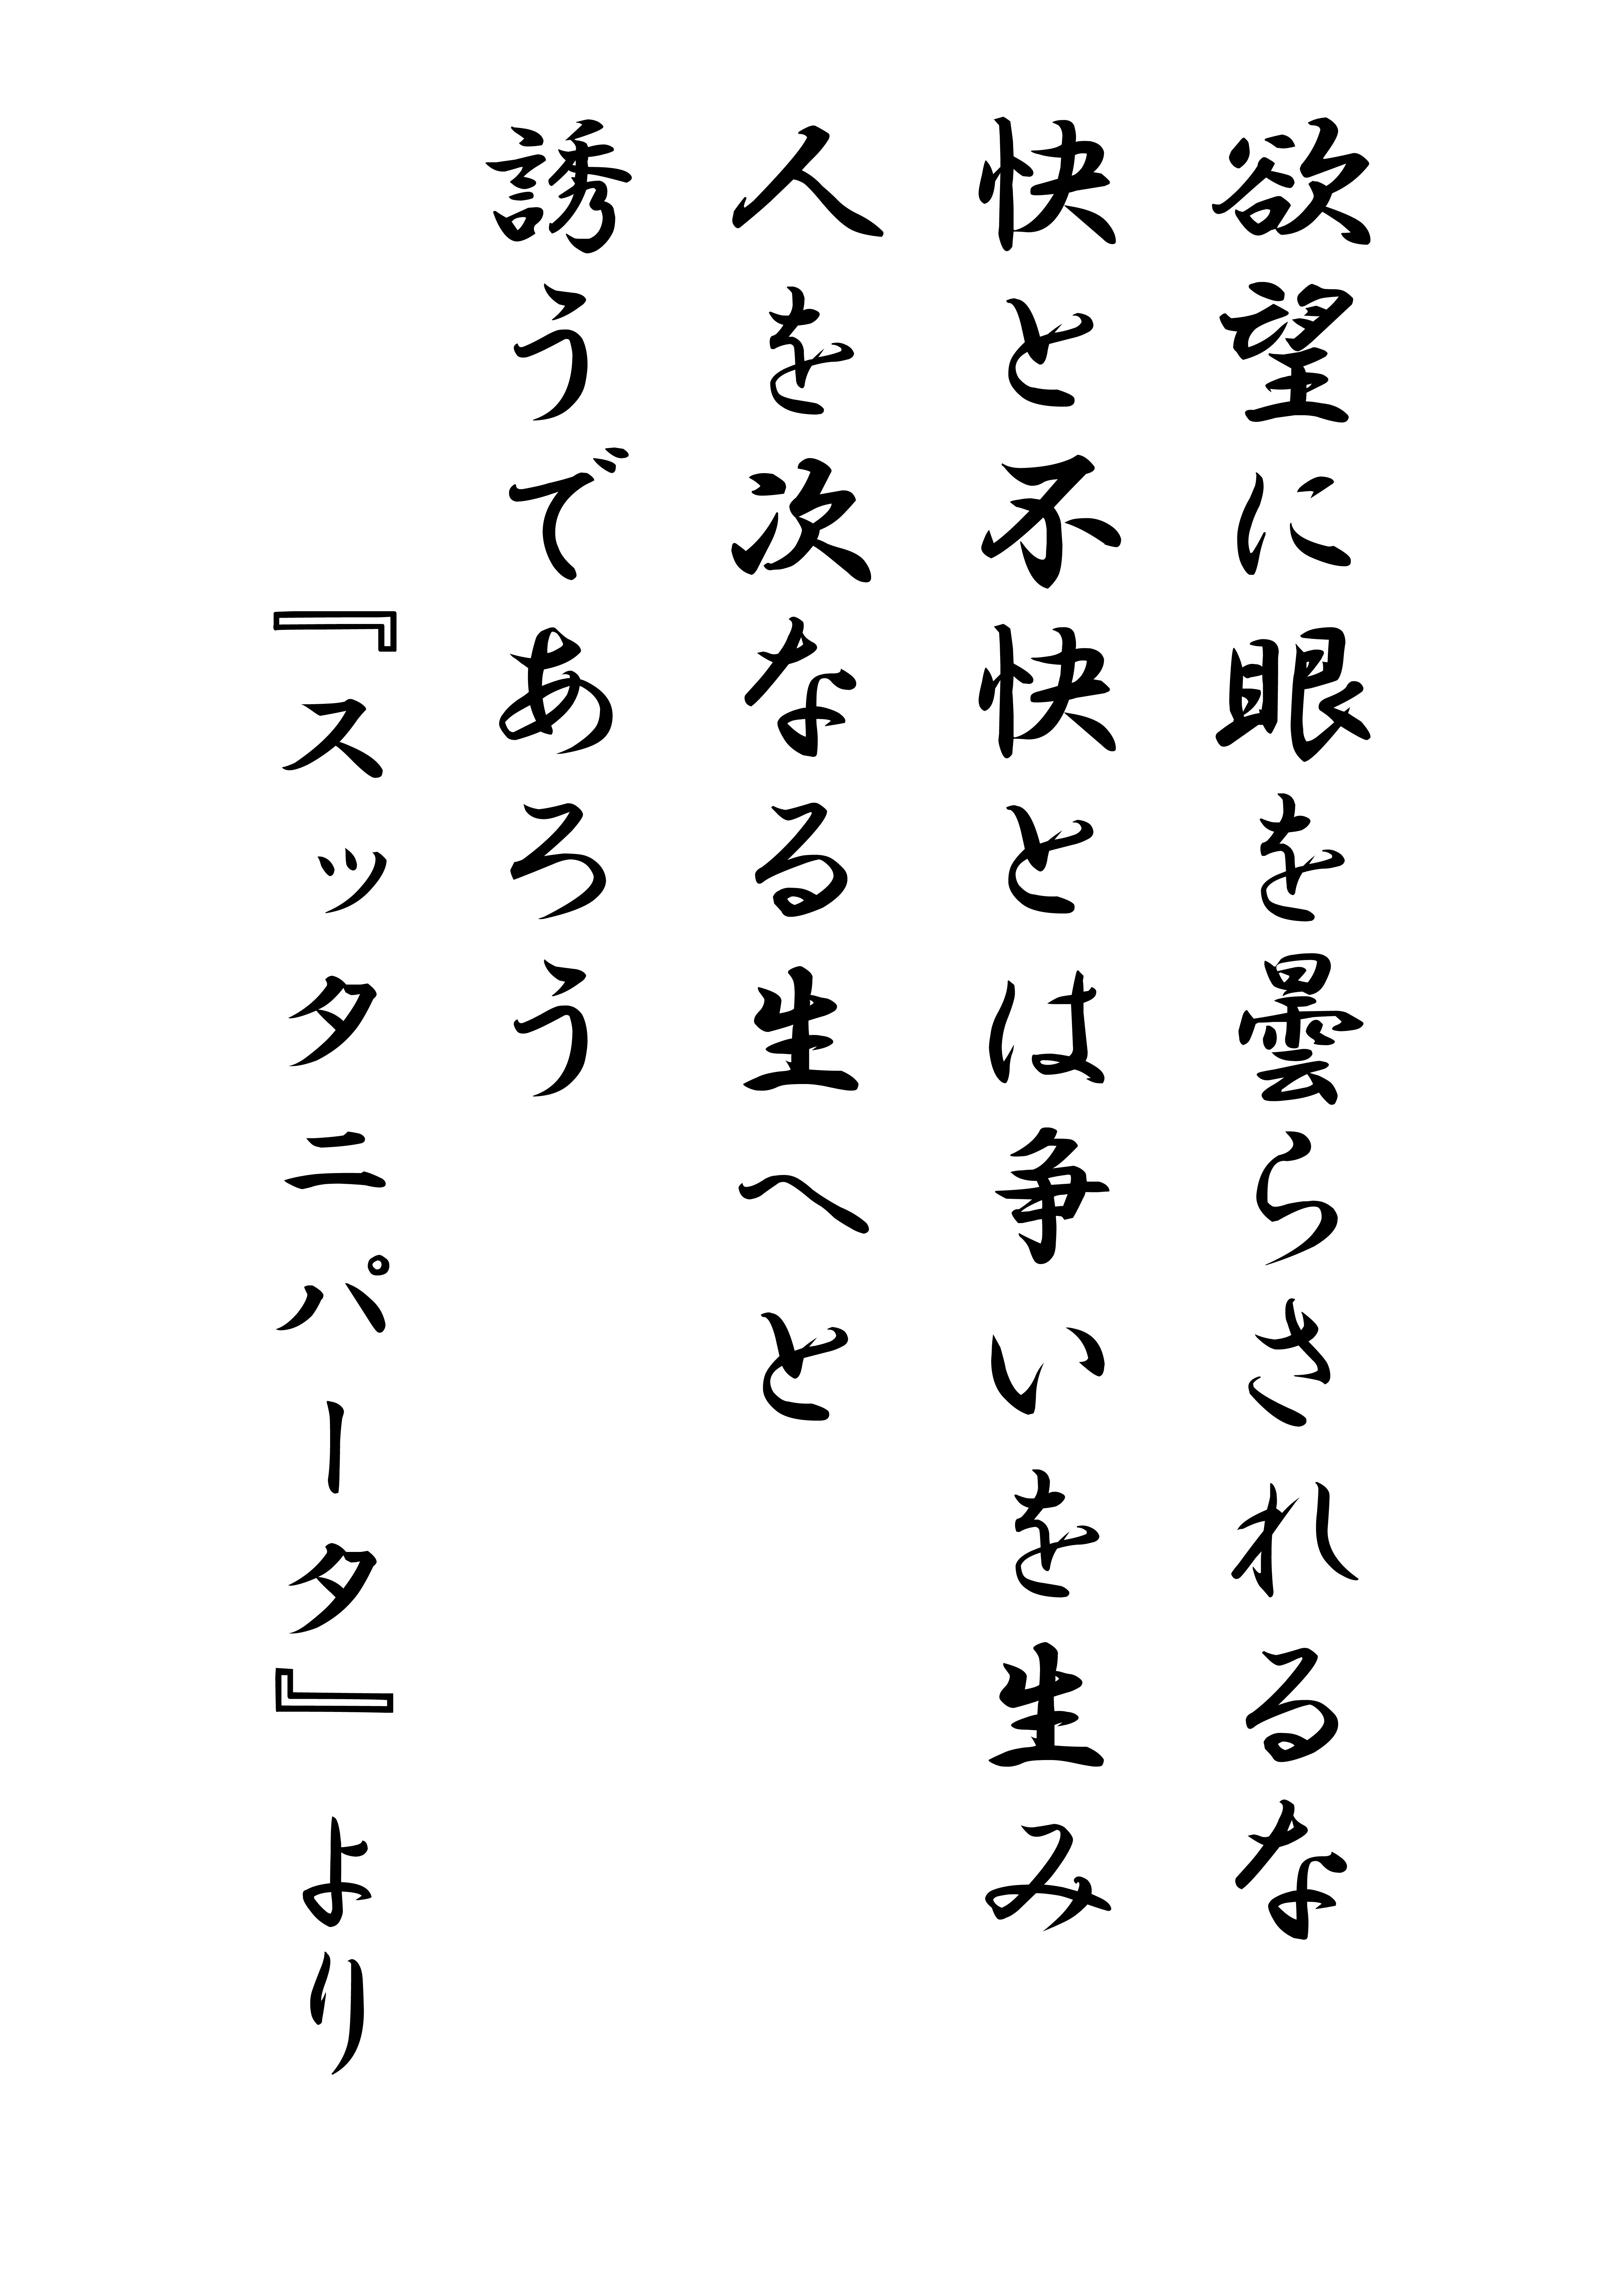 欲望に眼を曇らされるな
快と不快とは争いを生み
人を次なる生へと
誘うであろう
『スッタニパータ』より